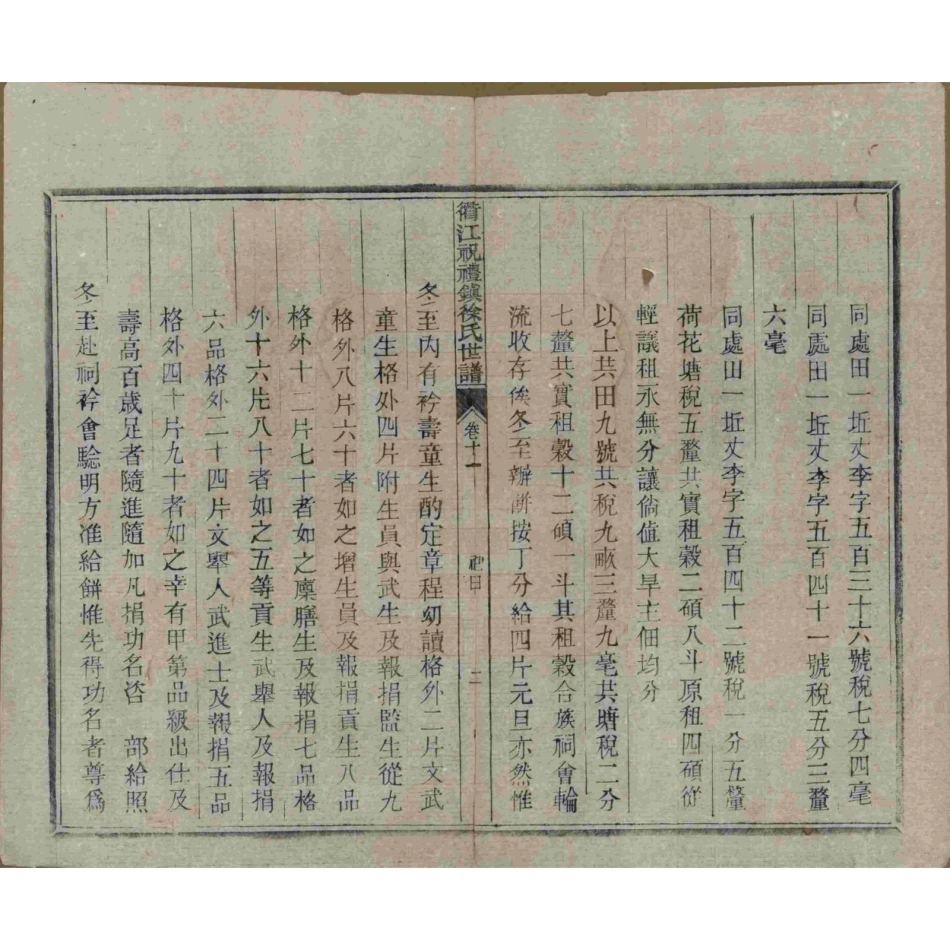 同處田一坵丈李字五百三十六號稅七分四毫
同處田一坵丈李字五百四十一號稅五分三釐
六毫
同處田一坵丈李字五百四十二號稅一分五釐
荷花塘稅五釐共實租穀二碩八斗原租四碩從
輕議租永無分讓倘值大旱主佃均分
以上共田九號共稅九畝三釐九毫共塘稅二分
七釐共實租穀十二碩一斗其租穀合族祠會輪
流收存俟冬至辦餅按丁分給四片元旦亦然惟
衢江祝禮鎮徐氏世譜 卷十一 祀田 二
冬至內有衿壽童生酌定章程幼讀格外二片文武
童生格外四片附生員與武生及報捐監生從九
格外八片六十者如之增生員及報捐貢生八品
格外十二片七十者如之廩膳生及報捐七品格
外十六片八十者如之五等貢生武舉人及報捐
六品格外二十四片文舉人武進士及報捐五品
格外四十片九十者如之幸有甲第品級出仕及
壽高百歲足者隨進隨加凡捐功名咨 部給照
冬至赴祠衿會驗明方准給餅惟先得功名者尊為